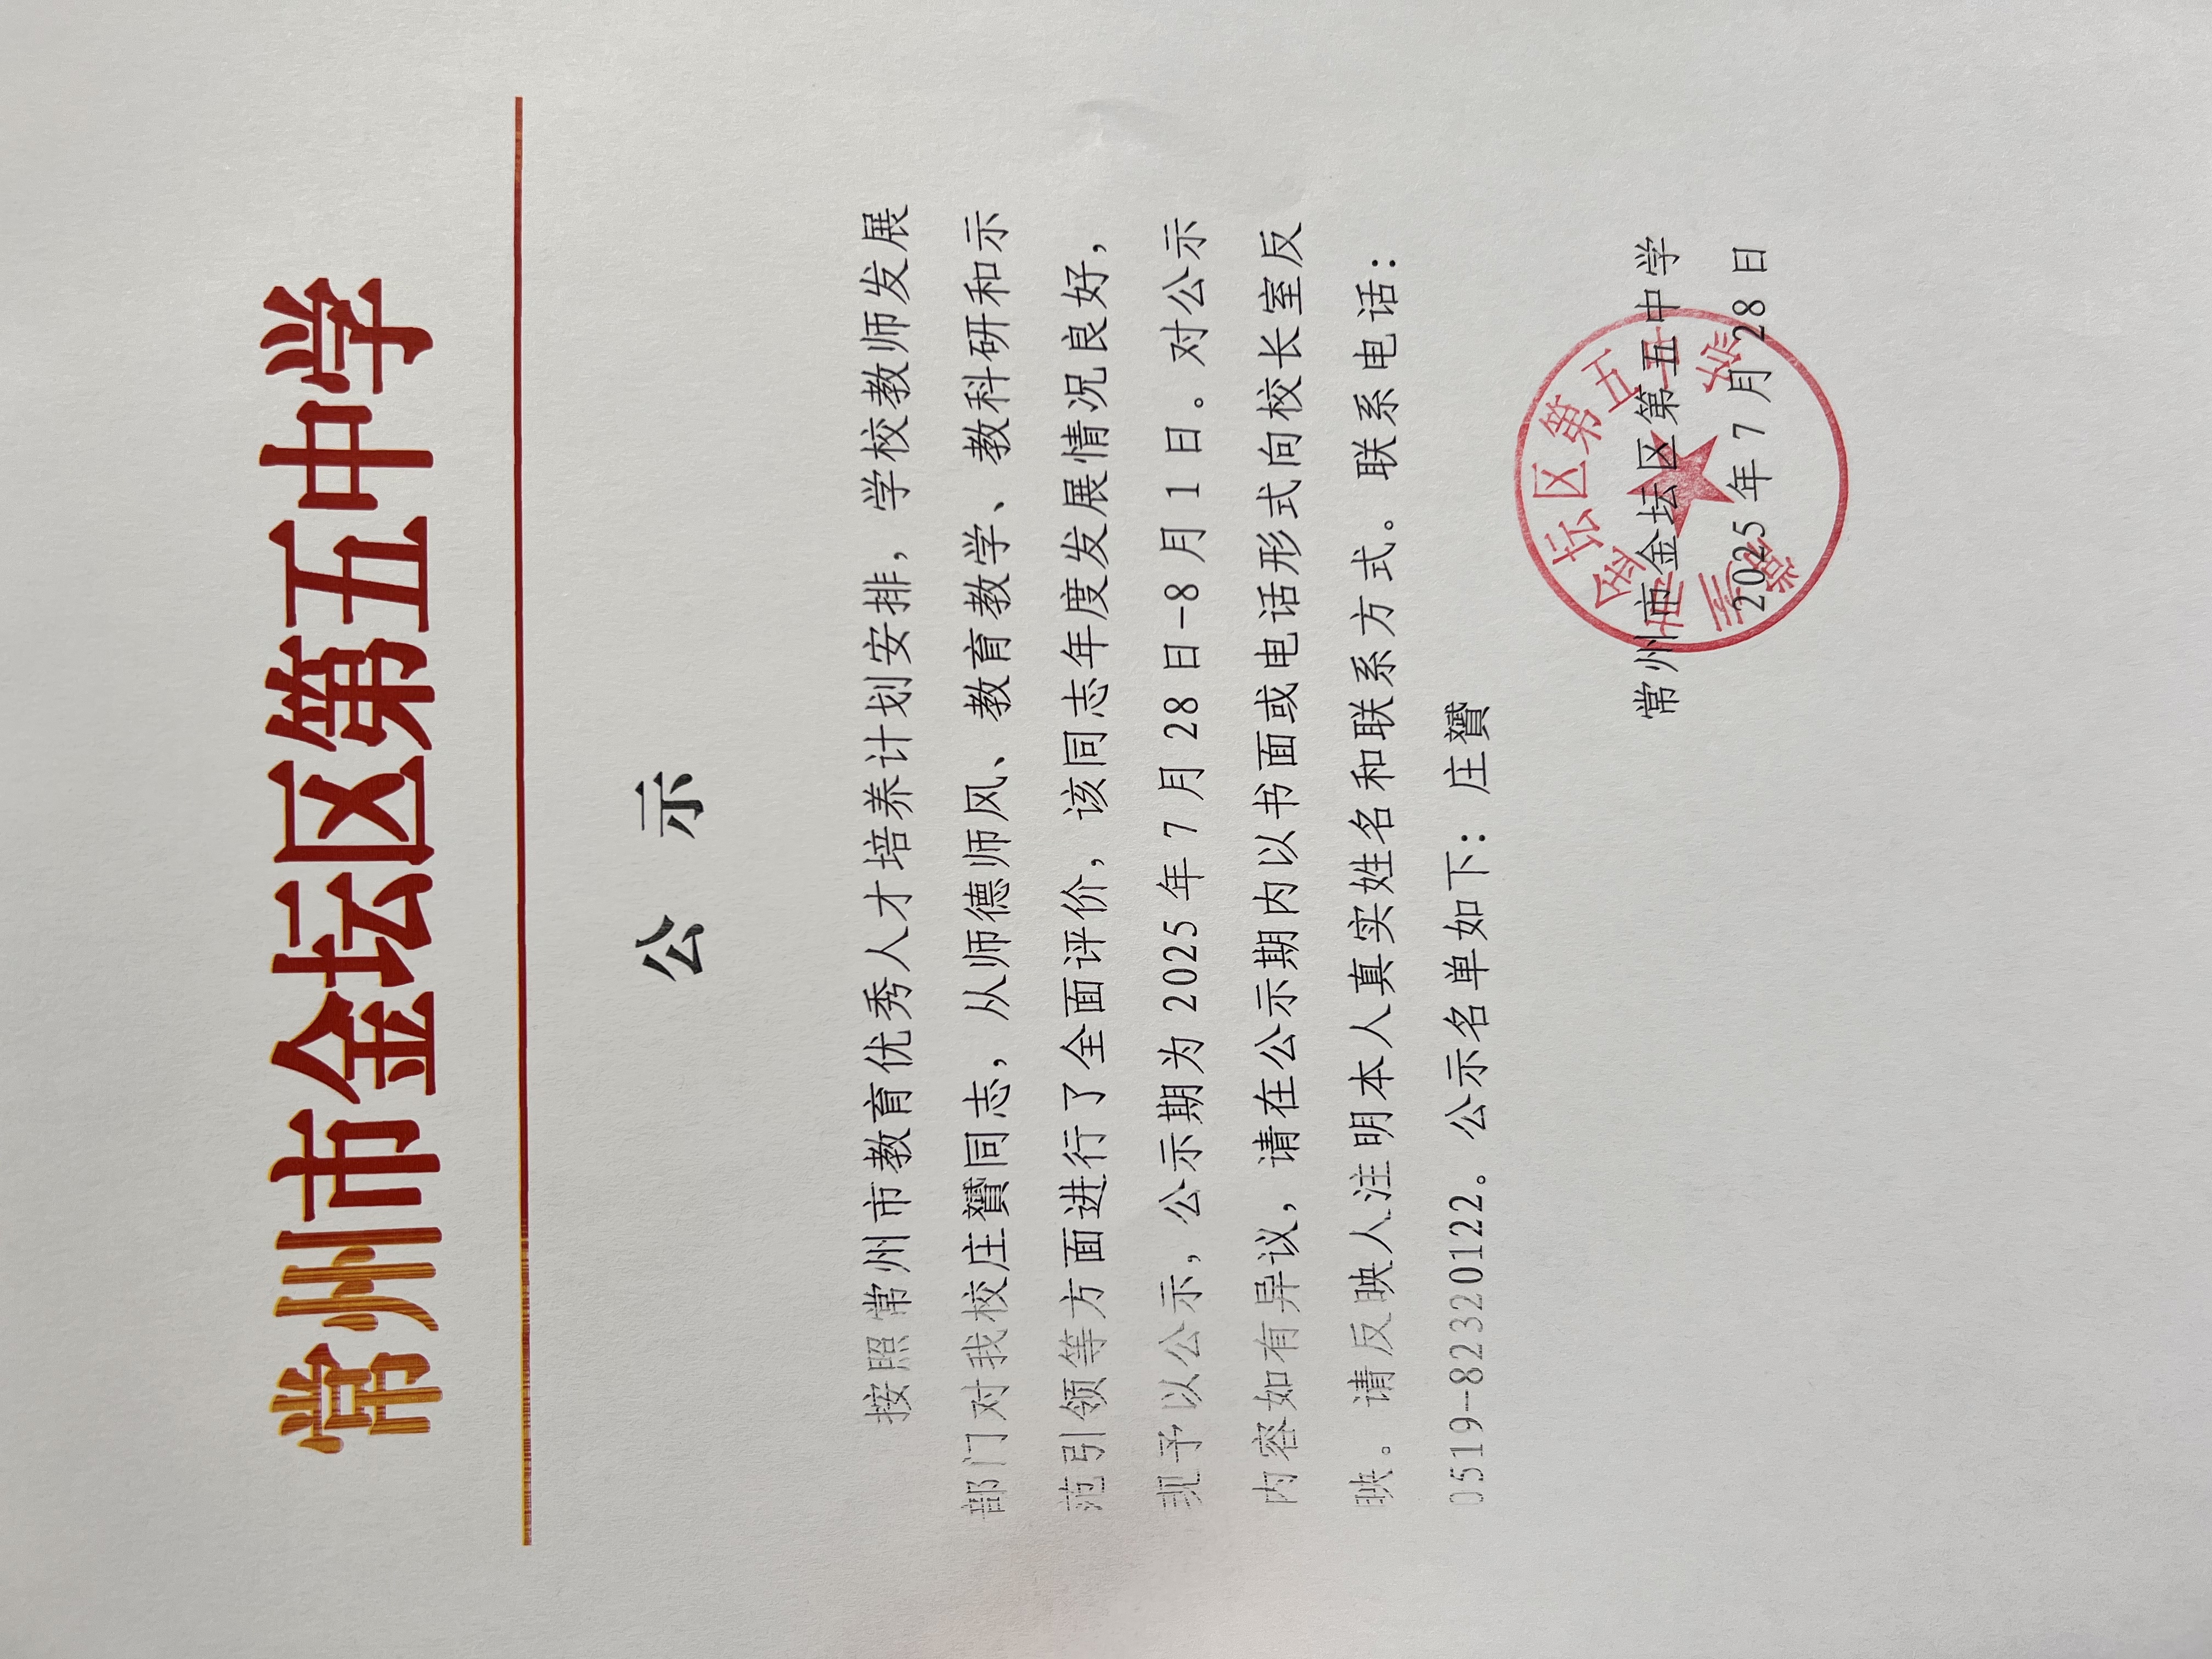 常州市金坛区第五中学
公 示
按照常州市教育优秀人才培养计划安排，学校教师发展
部门对我校庄贇同志，从师德师风、教育教学、教科研和示
范引领等方面进行了全面评价，该同志年度发展情况良好，
现予以公示，公示期为 2025 年 7 月 28 日-8 月 1 日。对公示
内容如有异议，请在公示期内以书面或电话形式向校长室反
映。请反映人注明本人真实姓名和联系方式。联系电话：
0519—82320122。公示名单如下：庄贇
常州市金坛区第五中学
2025 年 7 月 28 日
常州市金坛区第五中学